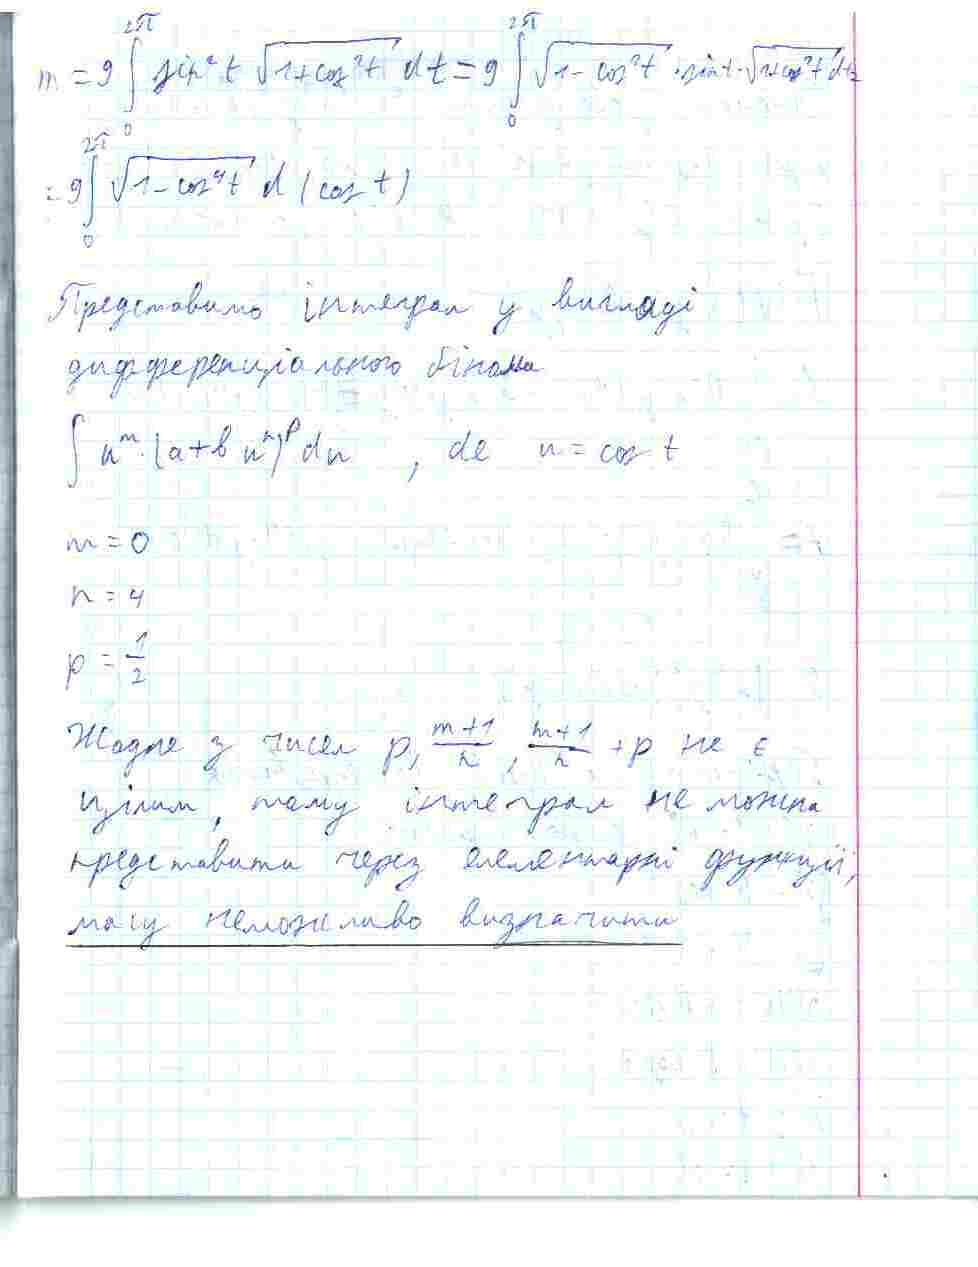 m = 9 ∫₀^{2π} sin²t √(1+cos²t) dt = 9 ∫₀^{2π} √(1-cos²t) · sin t · √(1+cos²t) dt =
= 9 ∫₀^{2π} √(1-cos⁴t) d(cos t)
Представимо інтеграл у вигляді
дифференціального бінома
∫ u^m · (a+b u^n)^p du , de u = cos t
m = 0
n = 4
p = 1/2
Жодне з чисел p, (m+1)/n, (m+1)/n + p не є
цілим, тому інтеграл не можна
представити через елементарні функції,
масу неможливо визначити